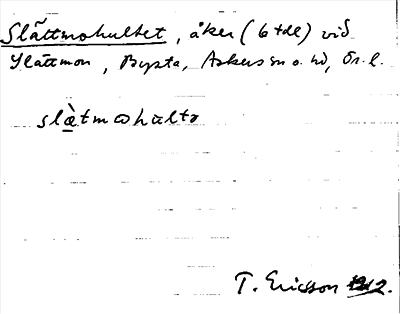 Slåttmohultet, åker (6 tdl) vid
Slåttmon, Bysta, Askers sn o. hd, Ör. l.
slàtmωhulto
T. Ericson 1912.